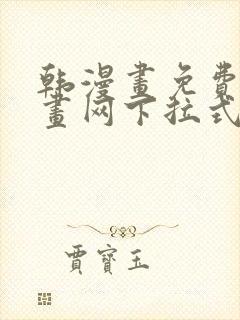 韩漫畫免費
畫网下拉式
賈寶玉